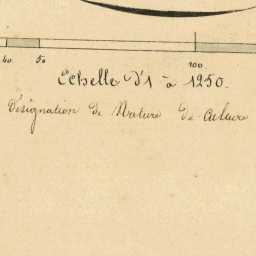 40 50 100
Echelle d'1 à 1250.
Désignation de Nature de Culture